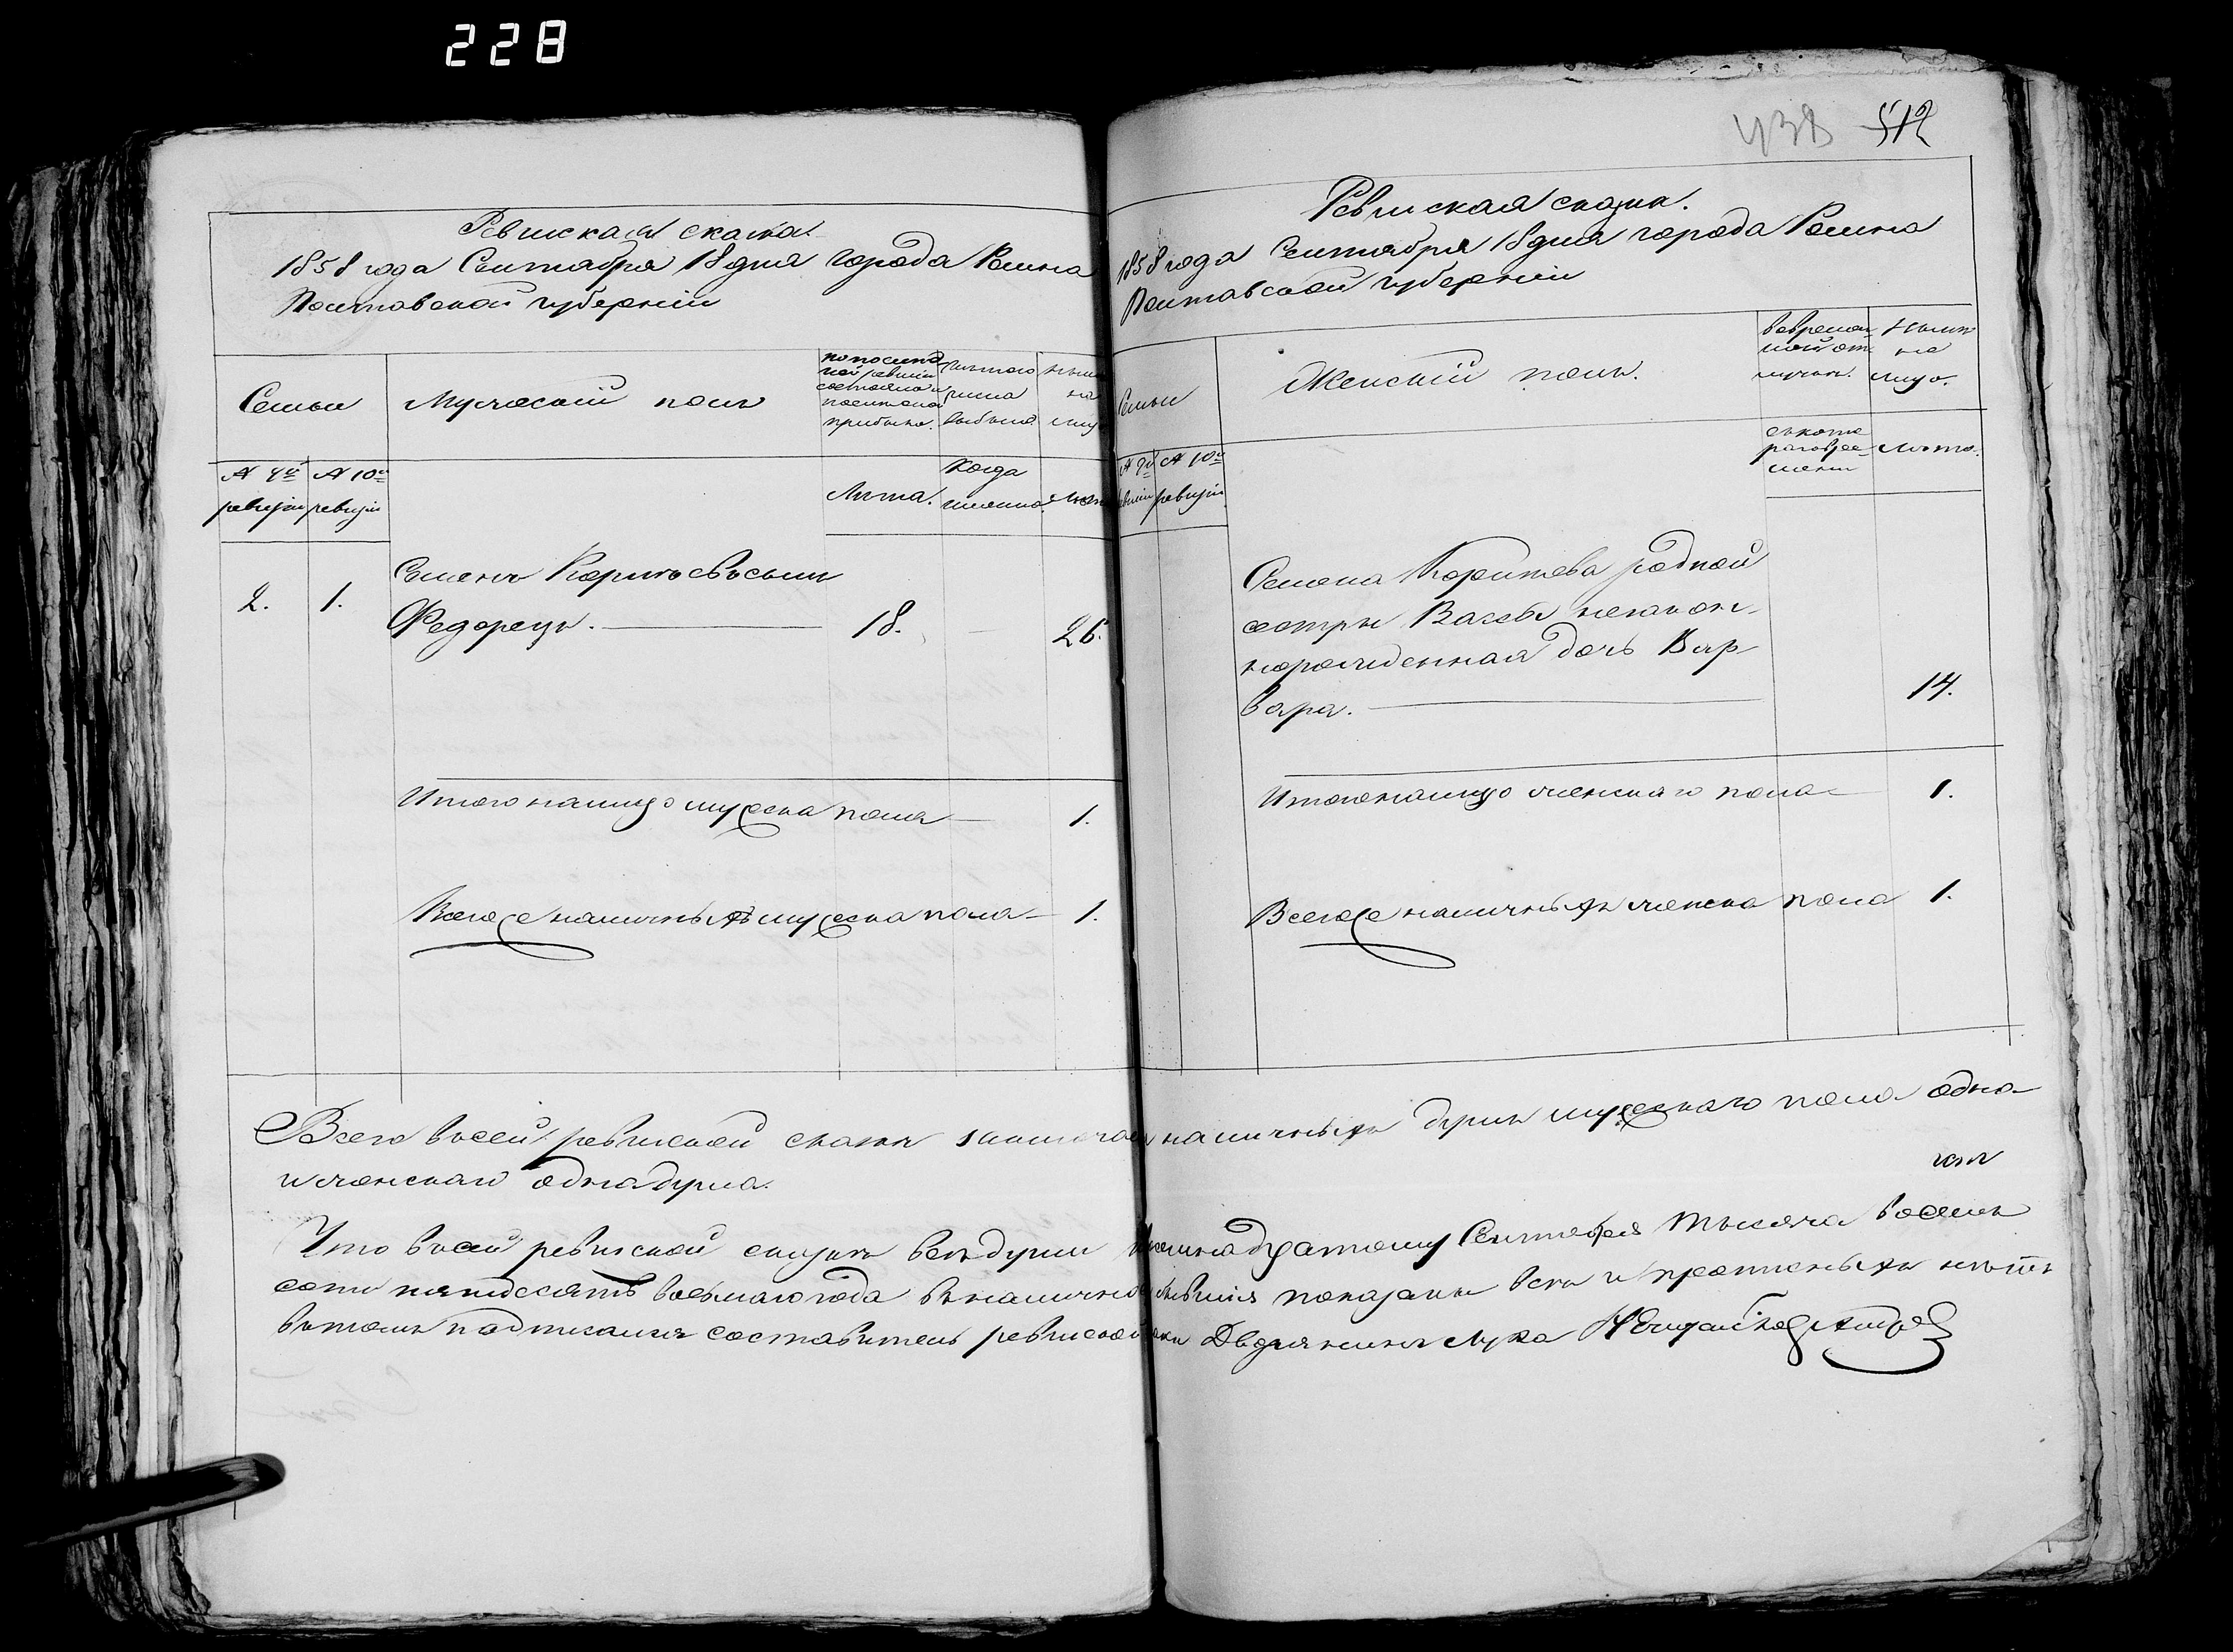 228
438 512
Ревизская сказка.
1858 года Сентября 18 дня города Ромна
Полтавской губерніи
Семьи
Мужескій полъ
по послед
ней ревизіи
состояло и
после того
прибыло.
изъ того
числа
выбыло
ныне
на
лицо
№ 9й
ревизіи
№ 10й
ревизіи
Лета.
Когда
именно.
Лета
2.
1.
Семенъ Корнеевъ сынъ
Федорецъ.
18.
26.
Итого налицо мужеска пола
1.
Всего же наличныхъ мужеска пола
1.
Ревизская сказка.
1858 года Сентября 18 дня города Ромна
Полтавской губерніи
Семьи
Женскій полъ.
во времен
ной от
лучке.
Ныне
на
лицо.
№ 9й
ревизіи
№ 10й
ревизіи.
съ кото
раго вре-
мени
Лета.
Семена Корнеева родной
сестры незакон
норожденная дочь Вар-
вара.
14.
Итого налицо женскаго пола
1.
Всего же наличныхъ женска пола
1.
Всего в сей ревизской сказке заключается наличныхъ душъ мужескаго пола одна
и женскаго одна душа.
Что в сей ревизской сказке все души къ осмнадцатому Сентября тысяча восемь
сотъ пятьдесятъ восьмаго года в наличности бывшія показаны все и прописныхъ нетъ
в томъ подписался составитель ревизской сказки Дворянинъ Лука